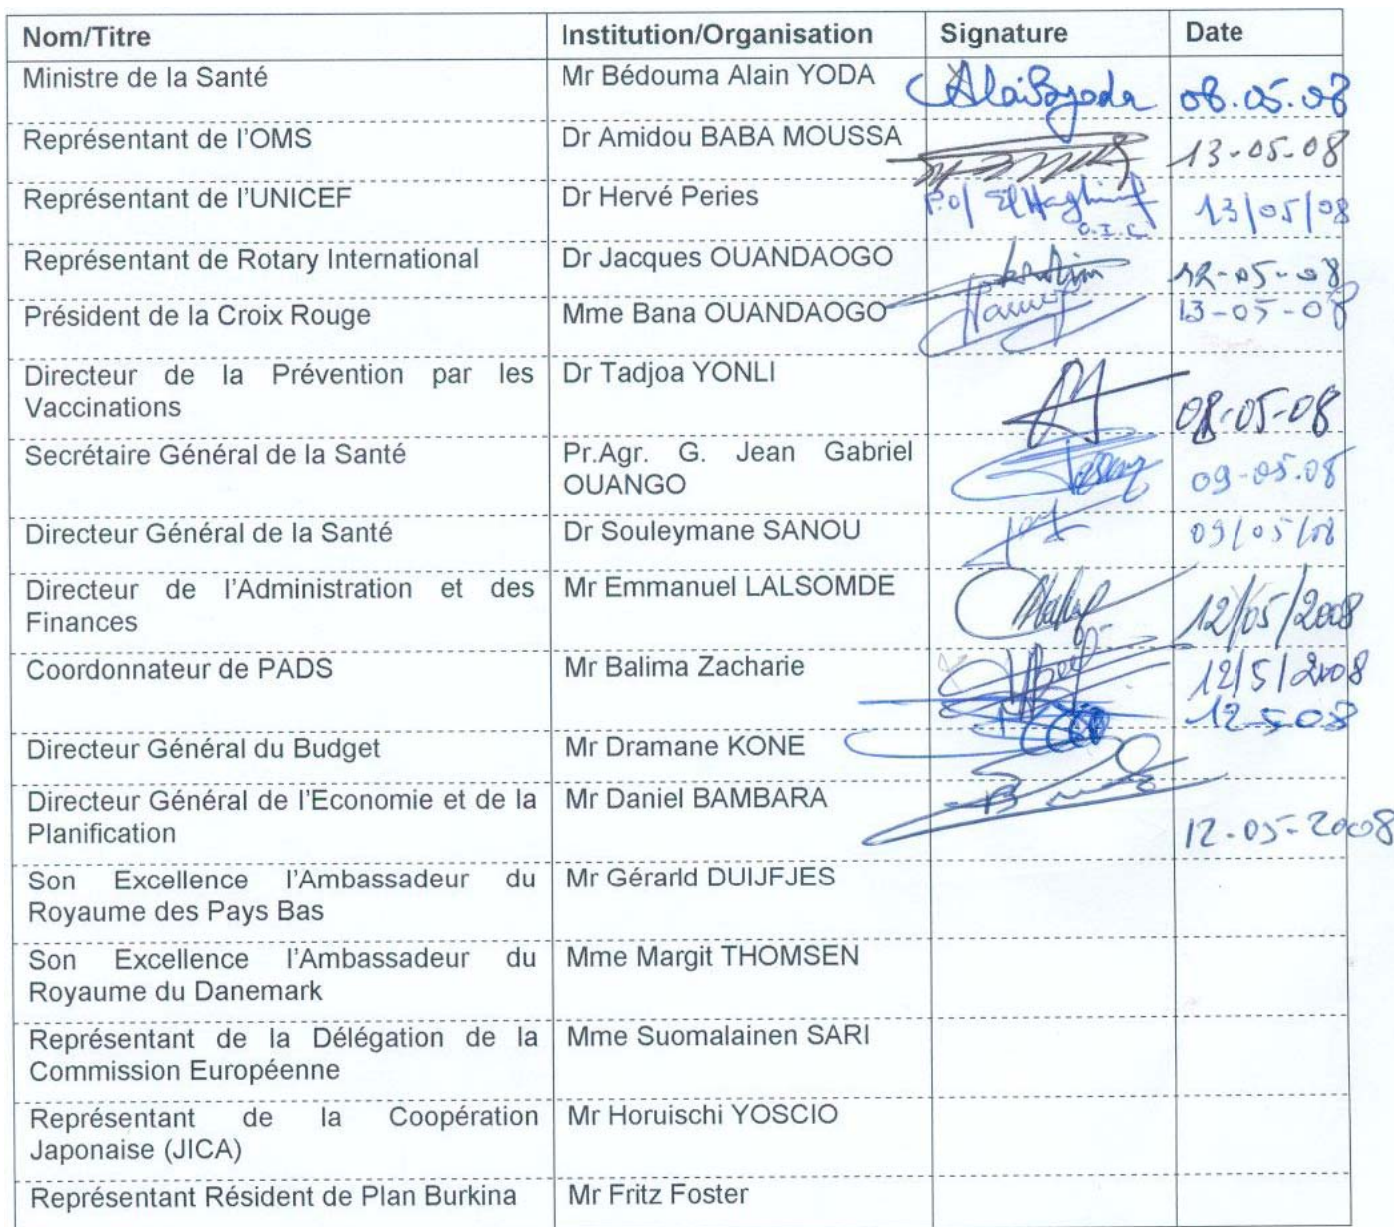 Nom/Titre Institution/Organisation Signature Date
Ministre de la Santé Mr Bédouma Alain YODA 08.05.08
Représentant de l'OMS Dr Amidou BABA MOUSSA 13-05-08
Représentant de l'UNICEF Dr Hervé Peries P.o/ 13/05/08
O.I.C
Représentant de Rotary International Dr Jacques OUANDAOGO 12-05-08
Président de la Croix Rouge Mme Bana OUANDAOGO 13-05-08
Directeur de la Prévention par les Dr Tadjoa YONLI
Vaccinations 08-05-08
Secrétaire Général de la Santé Pr.Agr. G. Jean Gabriel
OUANGO 09-05.08
Directeur Général de la Santé Dr Souleymane SANOU 09/05/08
Directeur de l'Administration et des Mr Emmanuel LALSOMDE
Finances 12/05/2008
Coordonnateur de PADS Mr Balima Zacharie 12/5/2008
12_5_08
Directeur Général du Budget Mr Dramane KONE
Directeur Général de l'Economie et de la Mr Daniel BAMBARA
Planification 12-05-2008
Son Excellence l'Ambassadeur du Mr Gérarld DUIJFJES
Royaume des Pays Bas
Son Excellence l'Ambassadeur du Mme Margit THOMSEN
Royaume du Danemark
Représentant de la Délégation de la Mme Suomalainen SARI
Commission Européenne
Représentant de la Coopération Mr Horuischi YOSCIO
Japonaise (JICA)
Représentant Résident de Plan Burkina Mr Fritz Foster